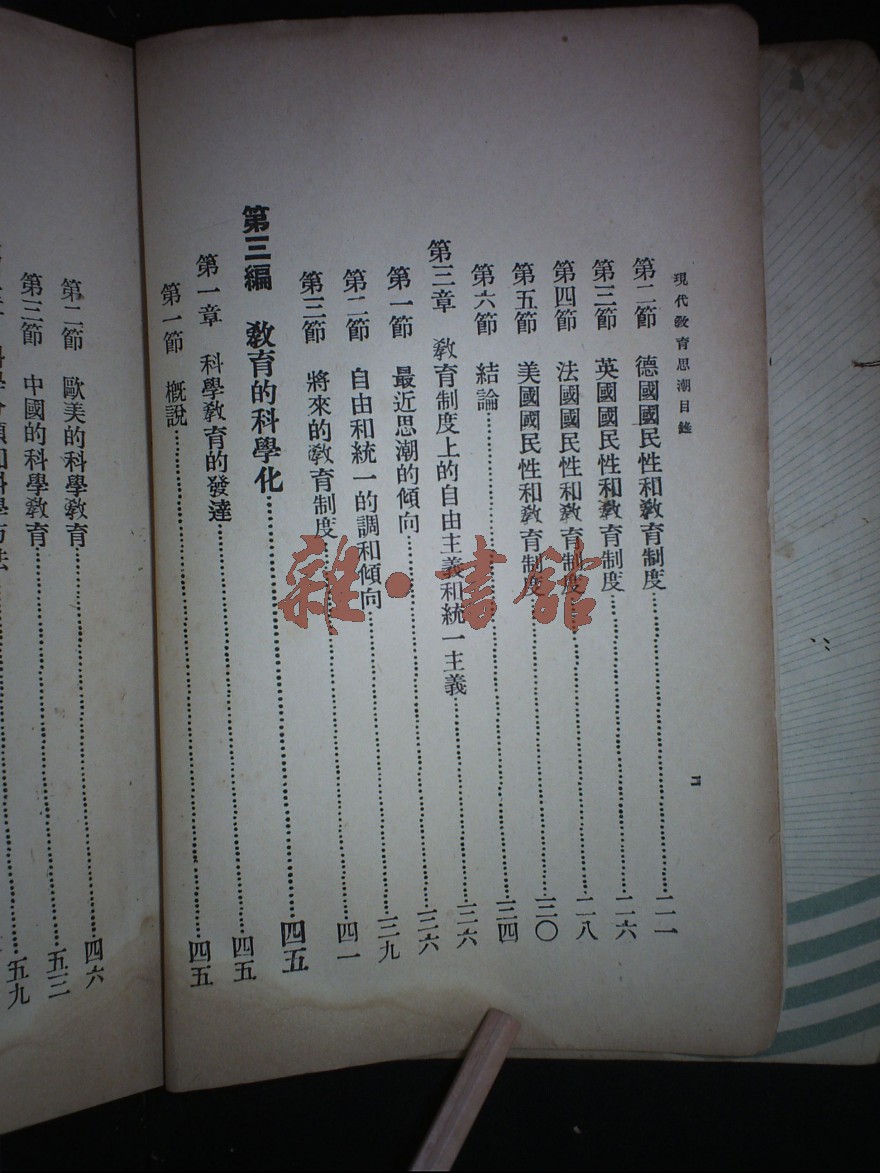 現代教育思潮目錄
第二節 德國國民性和教育制度……二一
第三節 英國國民性和教育制度……二六
第四節 法國國民性和教育制度……二八
第五節 美國國民性和教育制度……三〇
第六節 結論……三四
第三章 教育制度上的自由主義和統一主義……三六
第一節 最近思潮的傾向……三六
第二節 自由和統一的調和傾向……三九
第三節 將來的教育制度……四一
第三編 教育的科學化……四五
第一章 科學教育的發達……四五
第一節 概說……四五
第二節 歐美的科學教育……四六
第三節 中國的科學教育……五三
五九
雜·書館